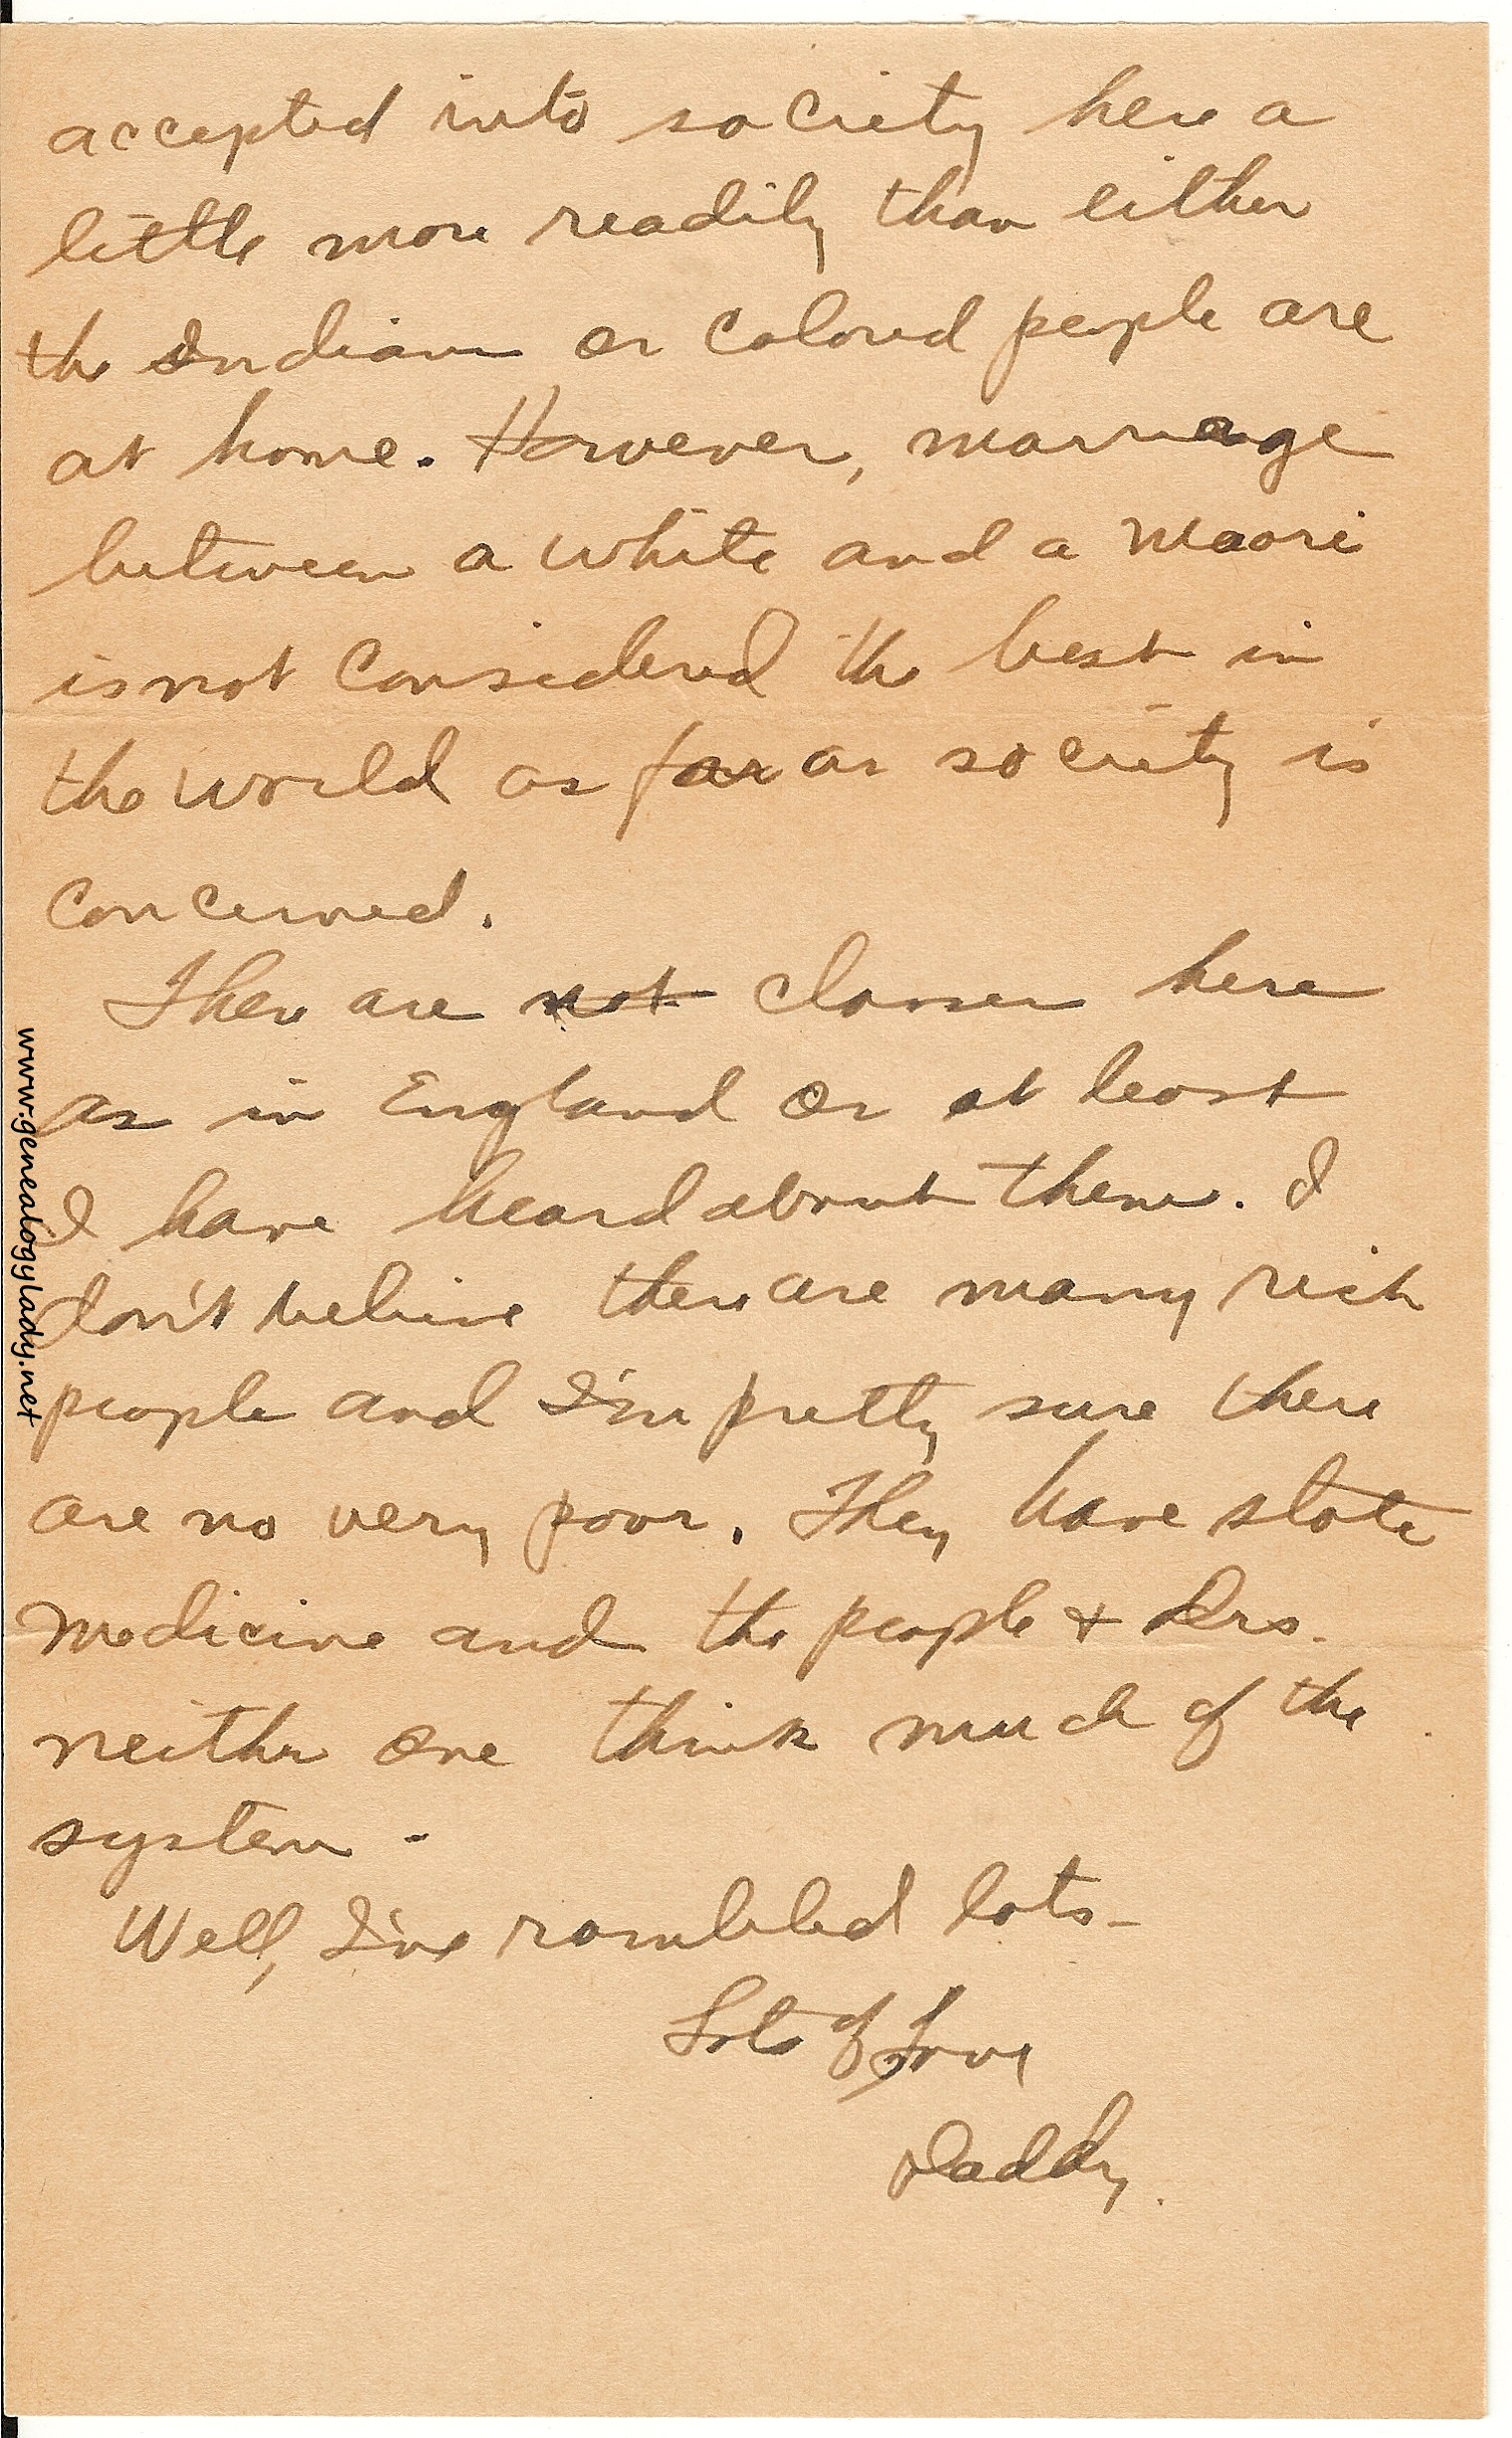 accepted into society here a
little more readily than either
the Indians or colored people are
at home. However, marriage
between a white and a Maori
is not considered the best in
the world as far as society is
concerned.
There are not classes here
as in England or at least
I have heard about them. I
don't believe there are many rich
people and I'm pretty sure there
are no very poor. They have state
medicine and the people + Drs.
neither one think much of the
system -
Well, I've rambled lots -
Lots of Love
Daddy.
www.genealogylady.net